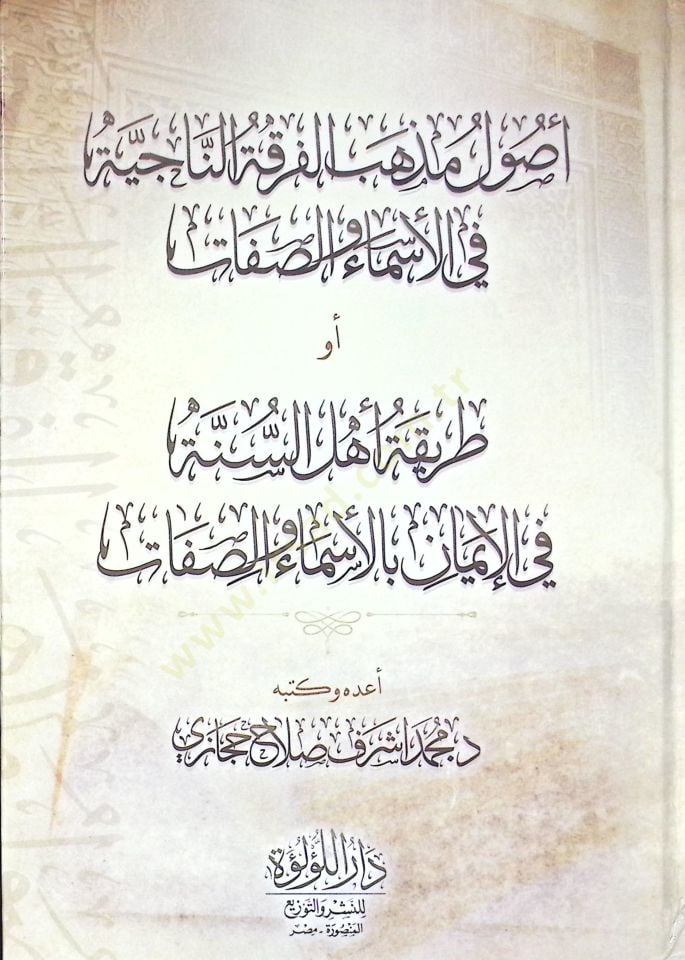 أصول مذهب الفرقة الناجية
في الأسماء والصفات
أو
طريقة أهل السُّنَّة
في الإيمان بالأسماء والصفات
أعده وكتبه
د. محمد أشرف صلاح حجازي
دار اللؤلؤة
للنشر والتوزيع
المنصورة - مصر